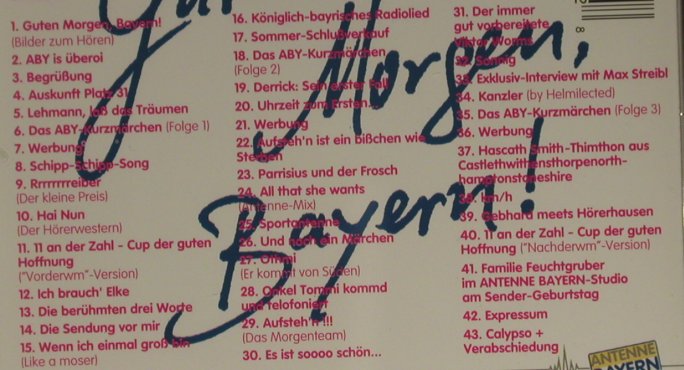 Guten
Morgen,
Bayern!
1. Guten Morgen, Bayern!
(Bilder zum Hören)
2. ABY is überoi
3. Begrüßung
4. Auskunft Platz 31
5. Lehmann, laß das Träumen
6. Das ABY-Kurzmärchen (Folge 1)
7. Werbung
8. Schipp-Schipp-Song
9. Rrrrrrrreiber
(Der kleine Preis)
10. Hai Nun
(Der Hörerwestern)
11. 11 an der Zahl - Cup der guten
Hoffnung
("Vorderwm"-Version)
12. Ich brauch' Elke
13. Die berühmten drei Worte
14. Die Sendung vor mir
15. Wenn ich einmal groß bin
(Like a moser)
16. Königlich-bayrisches Radiolied
17. Sommer-Schlußverkauf
18. Das ABY-Kurzmärchen
(Folge 2)
19. Derrick: Sein erster Fall
20. Uhrzeit zum Ersten
21. Werbung
22. Aufsteh'n ist ein bißchen wie
Sterben
23. Parrisius und der Frosch
24. All that she wants
(Antenne-Mix)
25. Sportantenne
26. Und noch ein Märchen
27. Ottmi
(Er kommt von Süden)
28. Onkel Tommi kommd
und telofoniert
29. Aufsteh'n !!!
(Das Morgenteam)
30. Es ist soooo schön...
31. Der immer
gut vorbereitete
Viktor Worms
32. Sonnig
33. Exklusiv-Interview mit Max Streibl
34. Kanzler (by Helmilected)
35. Das ABY-Kurzmärchen (Folge 3)
36. Werbung
37. Hascath Smith-Thimthon aus
Castlethwithensthorpenorth-
hamptonstoneshire
38. km/h
39. Gebhard meets Hörerhausen
40. 11 an der Zahl - Cup der guten
Hoffnung ("Nachderwm"-Version)
41. Familie Feuchtgruber
im ANTENNE BAYERN-Studio
am Sender-Geburtstag
42. Expressum
43. Calypso +
Verabschiedung
8
ANTENNE
BAYERN